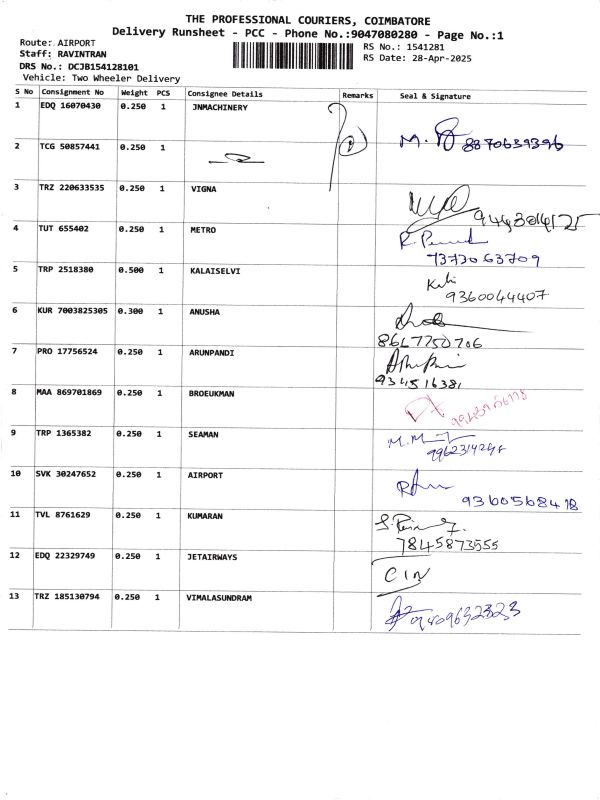 THE PROFESSIONAL COURIERS, COIMBATORE
Delivery Runsheet - PCC - Phone No.:9047080280 - Page No.:1
Route: AIRPORT
Staff: RAVINTRAN
DRS No.: DCJB154128101
Vehicle: Two Wheeler Delivery
RS No.: 1541281
RS Date: 28-Apr-2025
S No Consignment No Weight PCS Consignee Details Remarks Seal & Signature
1 EDQ 16070430 0.250 1 JNMACHINERY
2 TCG 50857441 0.250 1 8870639396
3 TRZ 220633535 0.250 1 VIGNA
4 TUT 655402 0.250 1 METRO 7373063709
5 TRP 2518380 0.500 1 KALAISELVI 9360044407
6 KUR 7003825305 0.300 1 ANUSHA 8667750706
7 PRO 17756524 0.250 1 ARUNPANDI
8 MAA 869701869 0.250 1 BROEUKMAN
9 TRP 1365382 0.250 1 SEAMAN
10 SVK 30247652 0.250 1 AIRPORT 9360568418
11 TVL 8761629 0.250 1 KUMARAN 7845873555
12 EDQ 22329749 0.250 1 JETAIRWAYS
13 TRZ 185130794 0.250 1 VIMALASUNDRAM